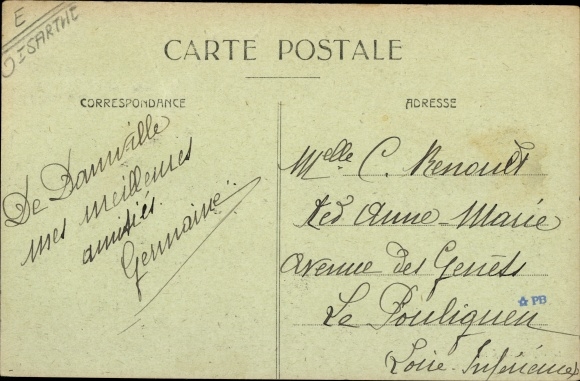 E
DISARTHE
CARTE POSTALE
CORRESPONDANCE
De Damville
mes meilleures
amitiés.
Germaine.
ADRESSE
Melle C. Renoult
Ked Anne-Marie
avenue des Genêts
Le Pouliguen
PB
(Loire-Inférieure)